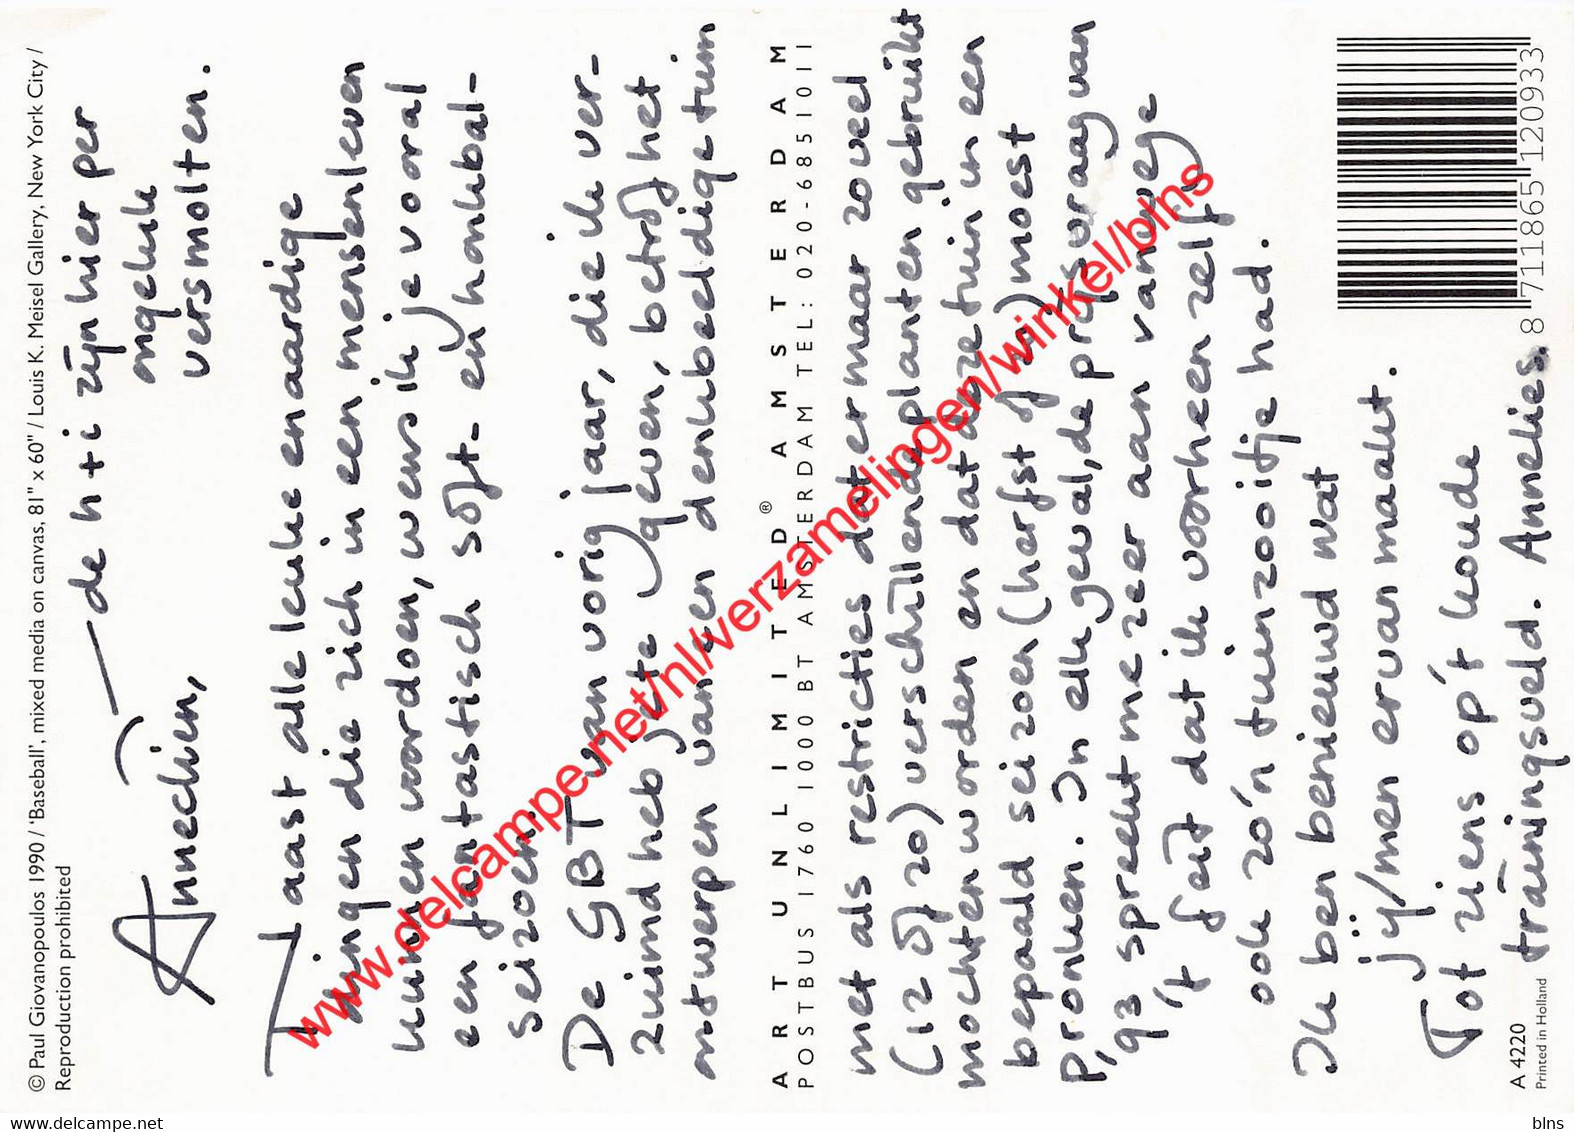 © Paul Giovanopoulos 1990 / 'Baseball', mixed media on canvas, 81" x 60" / Louis K. Meisel Gallery, New York City /
Reproduction prohibited
Annechien,
de h + i zijn hier per
ongeluk
versmolten.
Naast alle leuke en aardige
dingen die zich in een mensenleven
kunnen voordoen, wens ik je vooral
een fantastisch soft- en honkbal-
seizoen.
De GBT van vorig jaar, die ik ver-
zuimd heb je te geven, betrof het
ontwerpen van een denkbeeldige tuin
ART UNLIMITED® AMSTERDAM
POSTBUS 1760 1000 BT AMSTERDAM TEL: 020-6851011
met als restricties dat er maar zoveel
(12 of 20) verschillende planten gebruikt
mochten worden en dat deze tuin in een
bepaald seizoen (herfst of zo) moest
pronken. In elk geval, de prijsvraag van
'93 spreekt me zeer aan vanwege
't feit dat ik voorheen zelf
ook zo'n tuinzooitje had.
Ik ben benieuwd wat
jij/men ervan maakt.
Tot ziens op 't koude
trainingsveld. Annelies.
A 4220
Printed in Holland
8 711865 120933
www.delcampe.net/nl/verzamelingen/winkel/blns
delcampe.net
blns